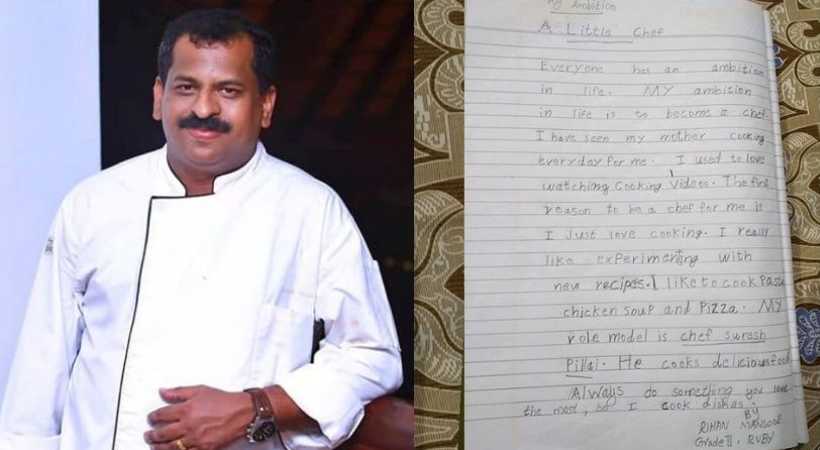 My Ambition
A Little Chef
Everyone has an ambition
in life. MY ambition
in life is to become a chef.
I have seen my mother cooking
everyday for me. I used to love
watching cooking videos. The first
reason to be a chef for me is
I Just love cooking. I really
like experimenting with
new recipes. I like to cook Pasta
chicken soup and Pizza. MY
role model is chef suresh
Pillai. He cooks delicious food
Always do something you love
the most, so I cook dishes.
BY
RIHAN MANSOOR
Grade II. RUBY